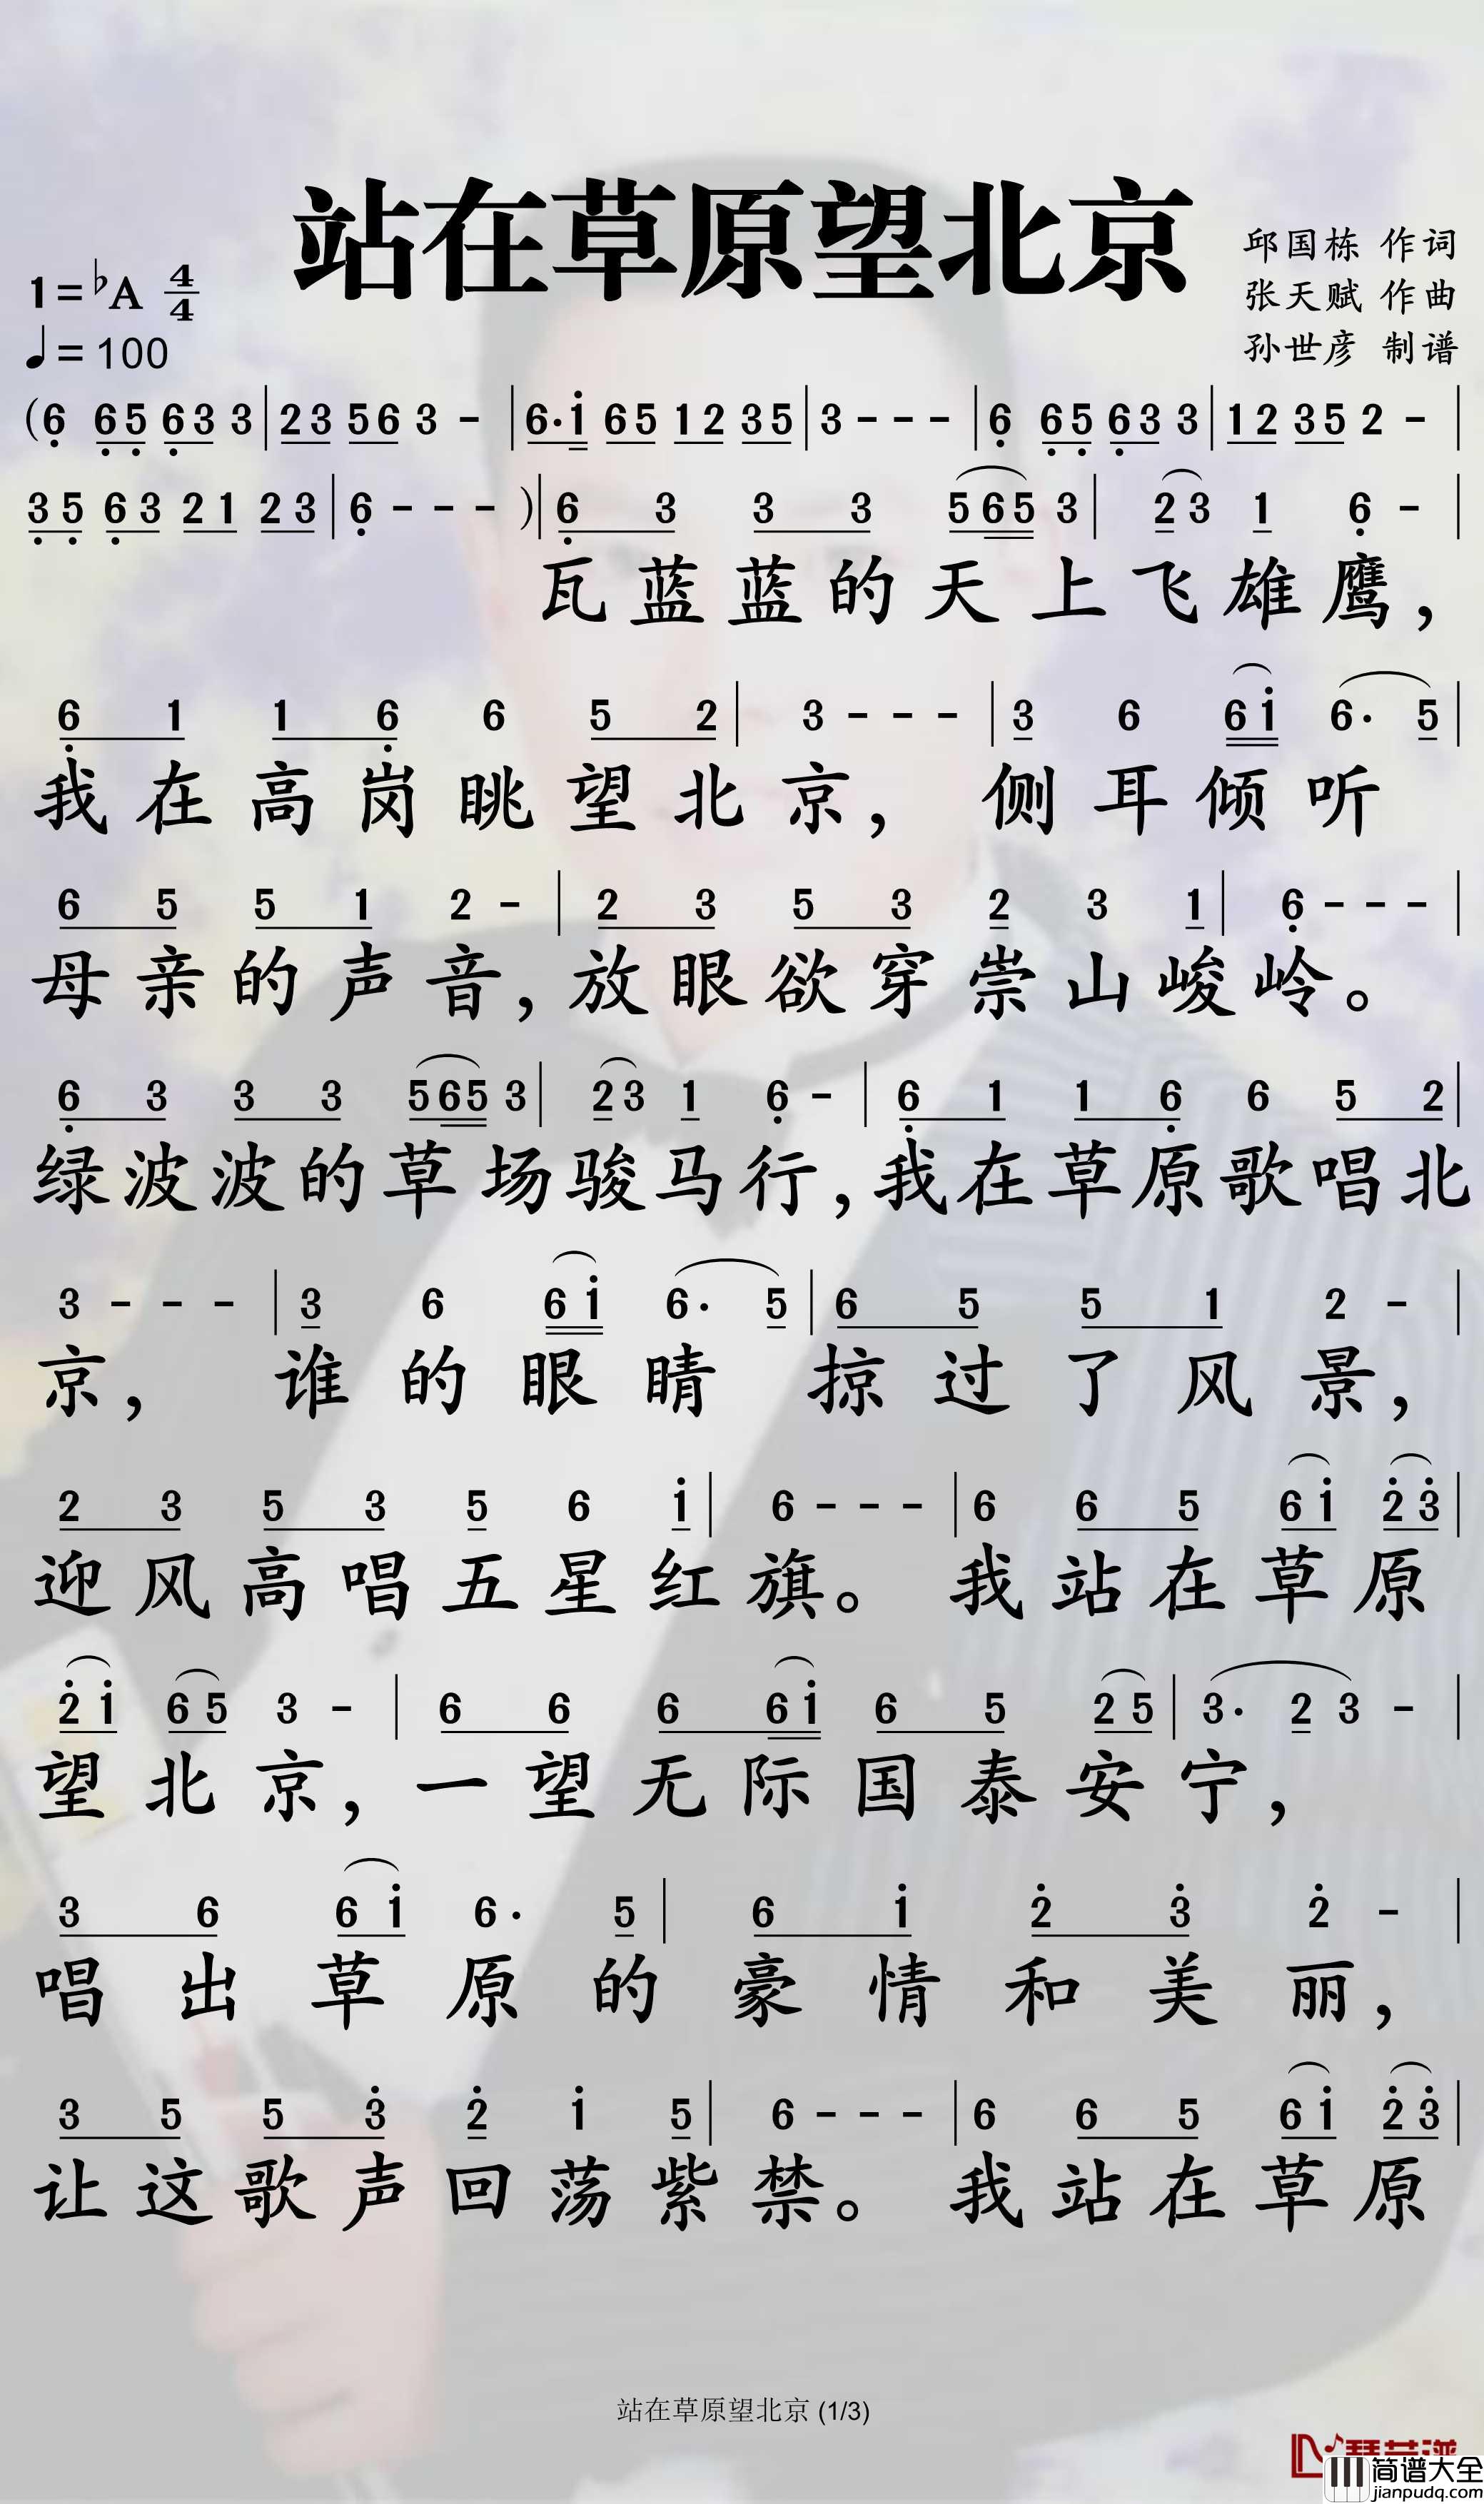 站在草原望北京
邱国栋 作词
张天赋 作曲
孙世彦 制谱
1=♭A 4/4
♩=100
(6̣ 6̣5̣ 6̣3 3|23 56 3 -|6·i̇ 65 12 35|3 - - -|6̣ 6̣5̣ 6̣3 3|12 35 2 -|
3̣5̣ 6̣3 21 23|6̣ - - - )|6̣ 3 3 3 565 3|23 1 6̣ -|
瓦蓝蓝的天上飞雄鹰，
6̣ 1 1 6̣ 6 5 2|3 - - -|3 6 6i̇ 6· 5|
我在高岗眺望北京，侧耳倾听
6 5 5 1 2 -|2 3 5 3 2 3 1|6̣ - - -|
母亲的声音，放眼欲穿崇山峻岭。
6̣ 3 3 3 565 3|23 1 6̣ -|6̣ 1 1 6̣ 6 5 2|
绿波波的草场骏马行，我在草原歌唱北
3 - - -|3 6 6i̇ 6· 5|6 5 5 1 2 -|
京，谁的眼睛掠过了风景，
2 3 5 3 5 6 i̇|6 - - -|6 6 5 6i̇ 2̇3̇|
迎风高唱五星红旗。我站在草原
2̇i̇ 65 3 -|6 6 6 6i̇ 6 5 25|3· 2 3 -|
望北京，一望无际国泰安宁，
3 6 6i̇ 6· 5|6 i̇ 2̇ 3̇ 2̇ -|
唱出草原的豪情和美丽，
3 5 5 3̇ 2̇ i̇ 5|6 - - -|6 6 5 6i̇ 2̇3̇|
让这歌声回荡紫禁。我站在草原
站在草原望北京 (1/3)
简谱大全
jianpudq.com